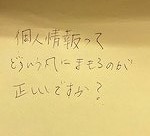 個人情報って
どういう風にまもるのが
正しいですか？